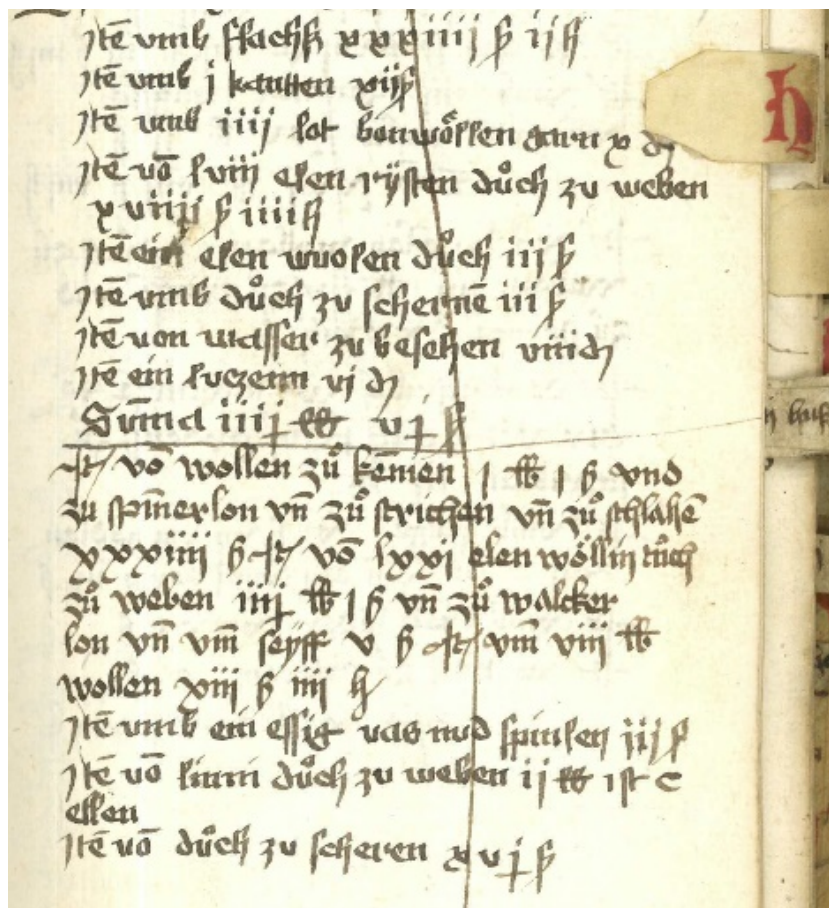 Jtē vmb flachß xxxiiij ß ij h
Jtē vmb j kautten xij ß
Jtē vmb iiij lot bonwöllen garn x d
Jtē vō lviij elen rÿsten důch zu weben
xviiij ß iiij h
Jtē ein elen wuolen důch iij ß
Jtē vmb důch zu schernē iii ß
Jtē von wasser zu besehen viii d
Jtē ein luczern vj d
Sūma iiij lb vj ß
Jt vō wollen zů kēmen j lb j ß vnd
zu spīnerlon vn̄ zů strichen vn̄ zů schlahē
xxxiiii ß Jt vō lxxi elen wöllin tůch
zů weben iiij lb j ß vn̄ zů walcker
lon vn̄ vm̄ seyff v ß Jt vm̄ viii lb
wollen xiii ß iiii h
Jtē vmb ein essig vas vnd spinlen iij ß
Jtē vō linin důch zu weben ij lb ist c
ellen
Jtē vō důch zu scheren xvj ß
h